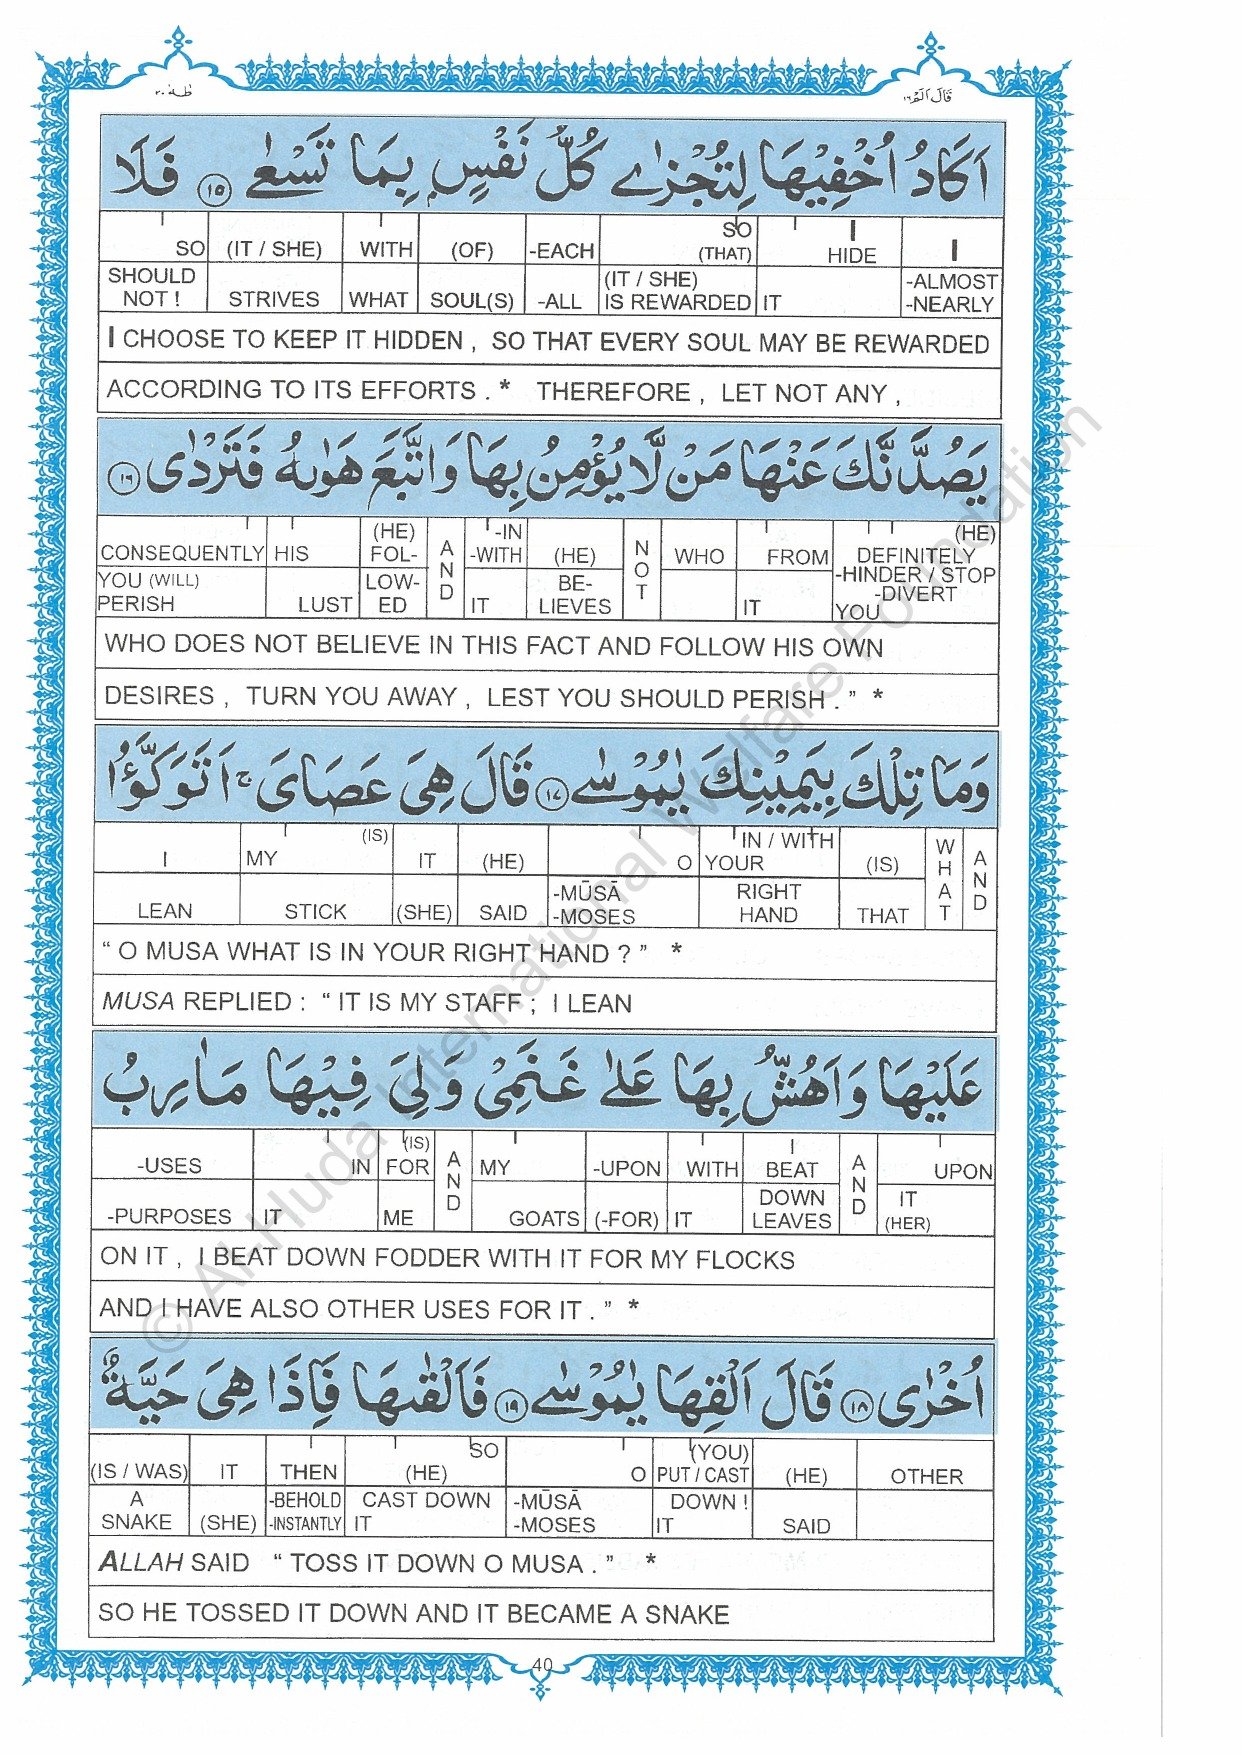 طٰهٰ ٢٠
قَالَ اَلَمْ ١٦
اَكَادُ اُخْفِيْهَا لِتُجْزٰے كُلُّ نَفْسٍۭ بِمَا تَسْعٰے ١٥ فَلَا
SO (IT / SHE) WITH (OF) -EACH SO (THAT) I HIDE I
SHOULD NOT ! STRIVES WHAT SOUL(S) -ALL (IT / SHE) IS REWARDED IT -ALMOST -NEARLY
I CHOOSE TO KEEP IT HIDDEN , SO THAT EVERY SOUL MAY BE REWARDED
ACCORDING TO ITS EFFORTS . * THEREFORE , LET NOT ANY ,
يَصُدَّنَّكَ عَنْهَا مَنْ لَّا يُؤْمِنُ بِهَا وَاتَّبَعَ هَوٰىهُ فَتَرْدٰى ١٦
CONSEQUENTLY HIS (HE) FOL- AND -IN -WITH (HE) NOT WHO FROM (HE) DEFINITELY
YOU (WILL) PERISH LUST LOW- ED IT BE- LIEVES IT -HINDER / STOP -DIVERT YOU
WHO DOES NOT BELIEVE IN THIS FACT AND FOLLOW HIS OWN
DESIRES , TURN YOU AWAY , LEST YOU SHOULD PERISH . ” *
وَمَا تِلْكَ بِيَمِيْنِكَ يٰمُوْسٰے ١٧ قَالَ هِىَ عَصَاىَ ۚ اَتَوَكَّؤُا
I MY (IS) IT (HE) O IN / WITH YOUR (IS) WHAT AND
LEAN STICK (SHE) SAID -MŪSĀ -MOSES RIGHT HAND THAT
“ O MUSA WHAT IS IN YOUR RIGHT HAND ? ” *
MUSA REPLIED : “ IT IS MY STAFF ; I LEAN
عَلَيْهَا وَاَهُشُّ بِهَا عَلٰے غَنَمِىْ وَلِىَ فِيْهَا مَاٰرِبُ
-USES IN (IS) FOR AND MY -UPON WITH I BEAT AND UPON
-PURPOSES IT ME GOATS (-FOR) IT DOWN LEAVES IT (HER)
ON IT , I BEAT DOWN FODDER WITH IT FOR MY FLOCKS
AND I HAVE ALSO OTHER USES FOR IT . ” *
اُخْرٰى ١٨ قَالَ اَلْقِهَا يٰمُوْسٰے ١٩ فَاَلْقٰىهَا فَاِذَا هِىَ حَيَّةٌ
(IS / WAS) IT THEN SO (HE) O (YOU) PUT / CAST (HE) OTHER
A SNAKE (SHE) -BEHOLD -INSTANTLY CAST DOWN IT -MŪSĀ -MOSES DOWN ! IT SAID
ALLAH SAID “ TOSS IT DOWN O MUSA . ” *
SO HE TOSSED IT DOWN AND IT BECAME A SNAKE
40
© Al-Huda International Welfare Foundation